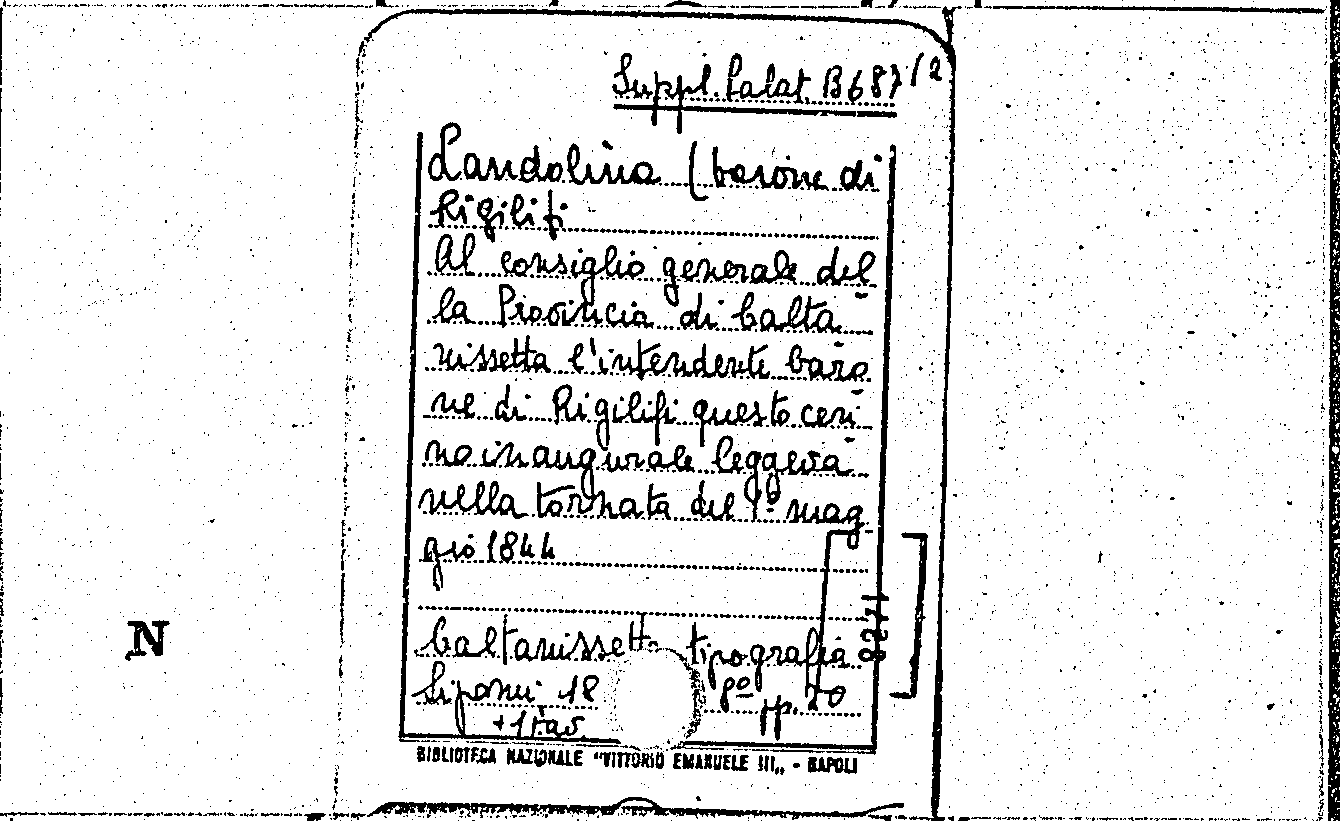 Suppl. Palat. B 687/2
Landolina (barone di
Rigilifi
Al consiglio generale del
la Provincia di Calta
nissetta l'intendente baro
ne di Rigilifi questo ceri
no inaugurale leggeva
nella tornata del 1º mag
gio 1844
Caltanissetta tipografia
Lipomi 18 8º pp. 20
+ 1 tav
BIBLIOTECA NAZIONALE "VITTORIO EMANUELE III„ - NAPOLI
N